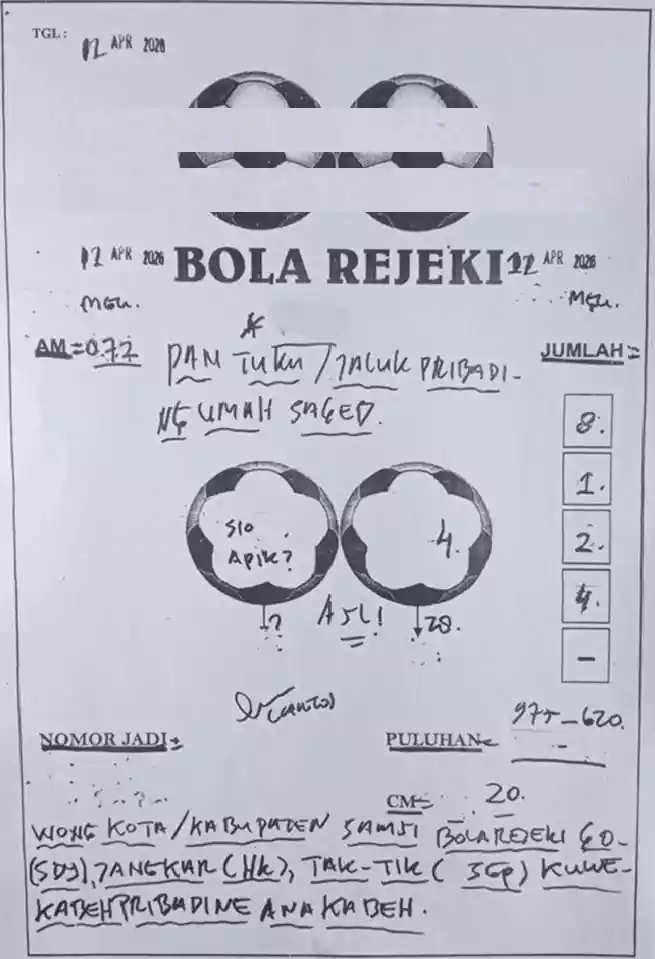 TGL: 12 APR 2026
12 APR 2026
BOLA REJEKI
12 APR 2026
MGU.
MGU.
AM=0.72
PAN TUKU / JALUK PRIBADI-
NG UMAH SAGED.
JUMLAH=
8.
1.
2.
4.
-
SIO
APIK?
4.
?
ASLI
28.
NOMOR JADI=
PULUHAN=
975-620.
-
CM=
20.
WONG KOTA/KABUPATEN SAMSI BOLAREJEKI GD-
(SDY), JANGKAR (HK), TAK-TIK ( SGP) KUWE-
KABEH PRIBADINE ANA KABEH.